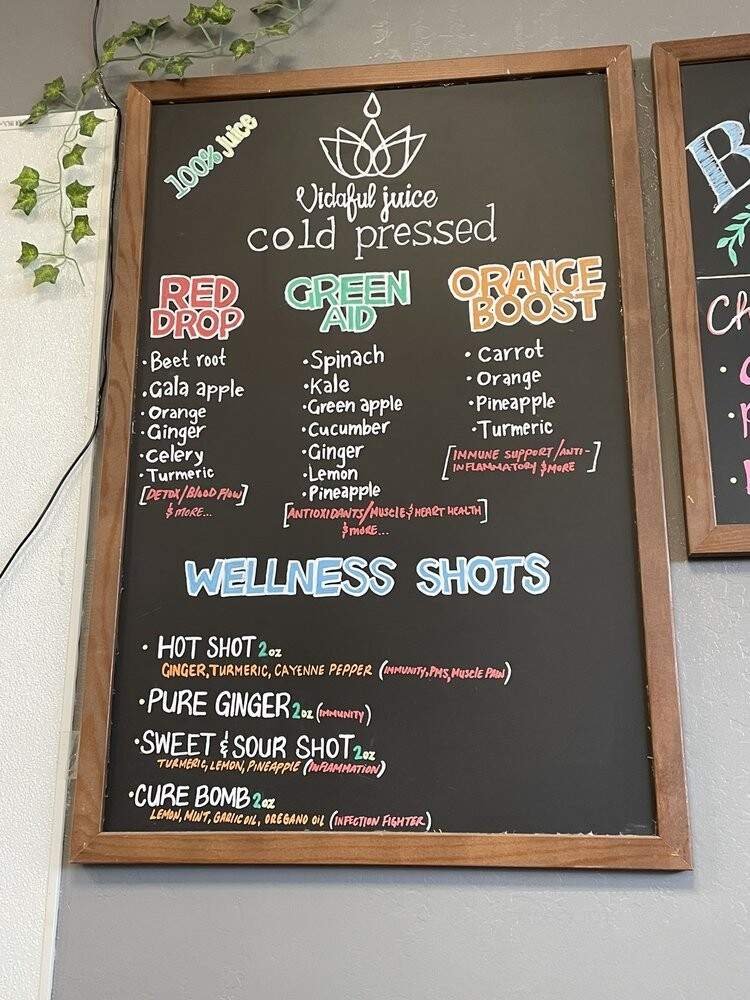 100% juice
Vidaful juice
cold pressed
RED
DROP
• Beet root
• Gala apple
• Orange
• Ginger
• Celery
• Turmeric
[DETOX/BLOOD FLOW]
& MORE...
GREEN
AID
• Spinach
• Kale
• Green apple
• Cucumber
• Ginger
• Lemon
• Pineapple
[ANTIOXIDANTS/MUSCLE & HEART HEALTH]
& MORE...
ORANGE
BOOST
• Carrot
• Orange
• Pineapple
• Turmeric
[IMMUNE SUPPORT/ANTI-
INFLAMMATORY & MORE]
WELLNESS SHOTS
• HOT SHOT 2oz
GINGER, TURMERIC, CAYENNE PEPPER (IMMUNITY, PMS, MUSCLE PAIN)
• PURE GINGER 2oz (IMMUNITY)
• SWEET & SOUR SHOT 2oz
TURMERIC, LEMON, PINEAPPLE (INFLAMMATION)
• CURE BOMB 2oz
LEMON, MINT, GARLIC OIL, OREGANO OIL (INFECTION FIGHTER)